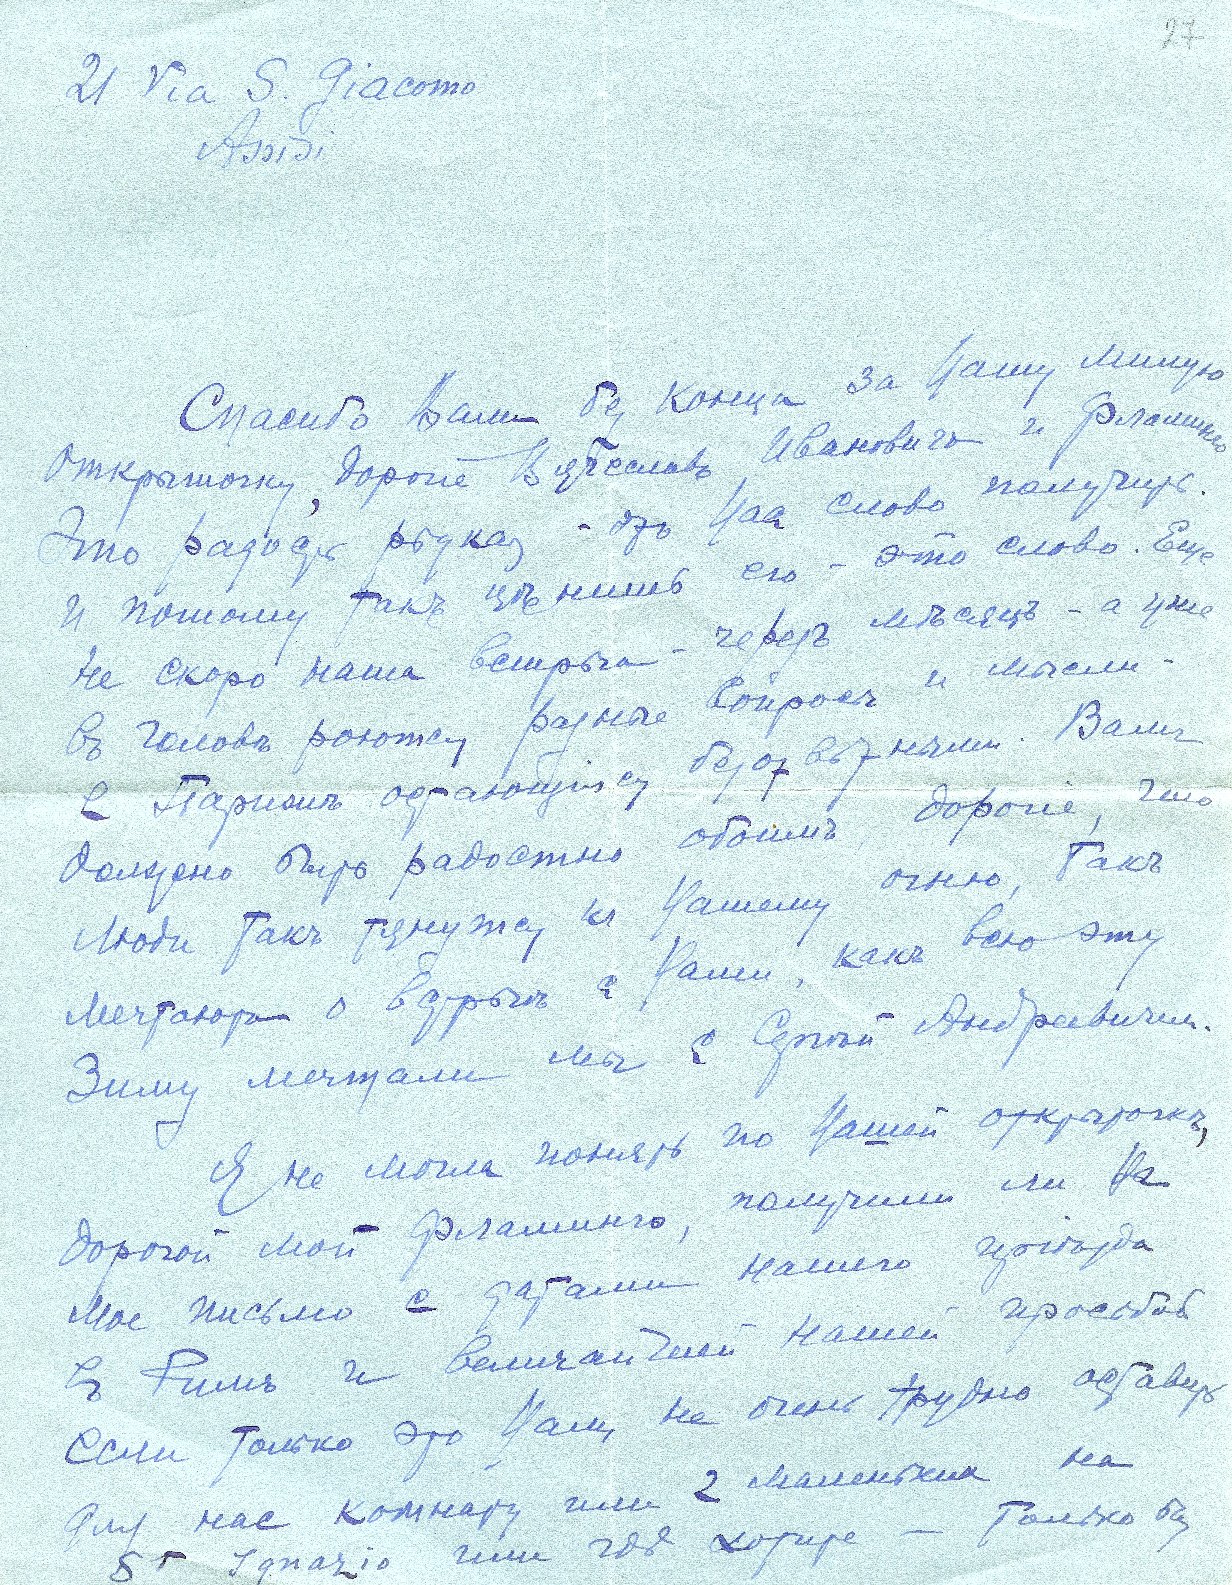 27
21 Via S. Giacomo
Assisi
Спасибо Вамъ без конца за Вашу милую
открыточку, дорогіе Вячеславъ Ивановичъ и Фламинго
Это радость рѣдкая - отъ Вас слово получить.
И потому такъ цѣнишь его - это слово. Еще
не скоро наша встрѣча - черезъ мѣсяцъ - а уже
въ головѣ роются разные вопросы и мысли -
с Парижъ остающіеся безотвѣтными. Вамъ
должно быть радостно обоимъ, дорогіе, что
люди такъ тянутся къ Вашему огню, такъ
мечтаютъ о встрѣчѣ с Вами, какъ всю эту
зиму мечтали мы с Сергѣй Андреевичем.
Я не могла понять по Вашей открыткѣ,
дорогой мой Фламинго, получили ли Вы
мое письмо с датами нашего пріѣзда
въ Римъ и величайшей нашей просьбой
если только это Вамъ не очень трудно оставить
для нас комнату или 2 маленькия на
St Ignazio или гдѣ хотите — только бы